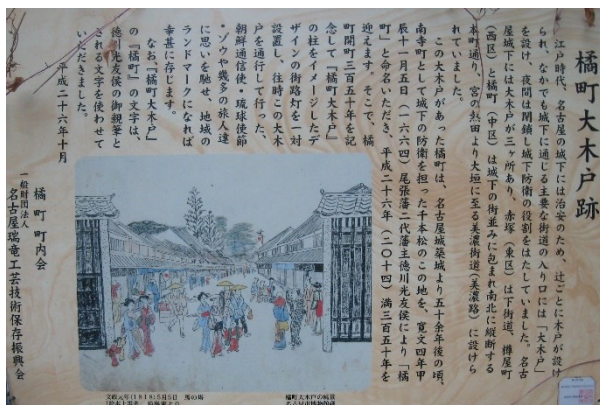 橘町大木戸跡
江戸時代、名古屋の城下には治安のため、辻ごとに木戸が設け
られ、なかでも城下に通じる主要な街道の入り口には「大木戸」
を設け、夜間は閉鎖し城下防衛の役割をはたしていました。名古
屋城下には大木戸が三ヶ所あり、赤塚（東区）は下街道、樽屋町
（西区）と橘町（中区）は城下の街並みに包まれ南北に縦断する
本町通り、宮の熱田より大垣に至る美濃街道（美濃路）に設けら
れていました。
この大木戸があった橘町は、名古屋城築城より五十余年後の頃、
南寺町として城下の防衛を担った千本松のこの地を、寛文四年甲
辰十一月五日（一六六四）尾張藩二代藩主徳川光友侯により「橘
町」と命名いただき、平成二十六年（二〇十四）満三百五十年を
迎えます。そこで、橘
町開町三百五十年を記
念して『橘町大木戸』
の柱をイメージしたデ
ザインの街路灯を一対
設置し、往時この大木
戸を通行して行った、
朝鮮通信使・琉球使節
・ゾウや幾多の旅人達
に思いを馳せ、地域の
ランドマークになれば
幸甚に存じます。
なお『橘町大木戸』
の『橘町』の文字は、
徳川光友侯の御親筆と
される文字を使わせて
いただきました。
平成二十六年十月
橘町町内会
一般財団法人
名古屋瑞竜工芸技術保存振興会
文政元年(1818)5月5日 馬の塔
橘町大木戸の風景
名古屋市博物館蔵